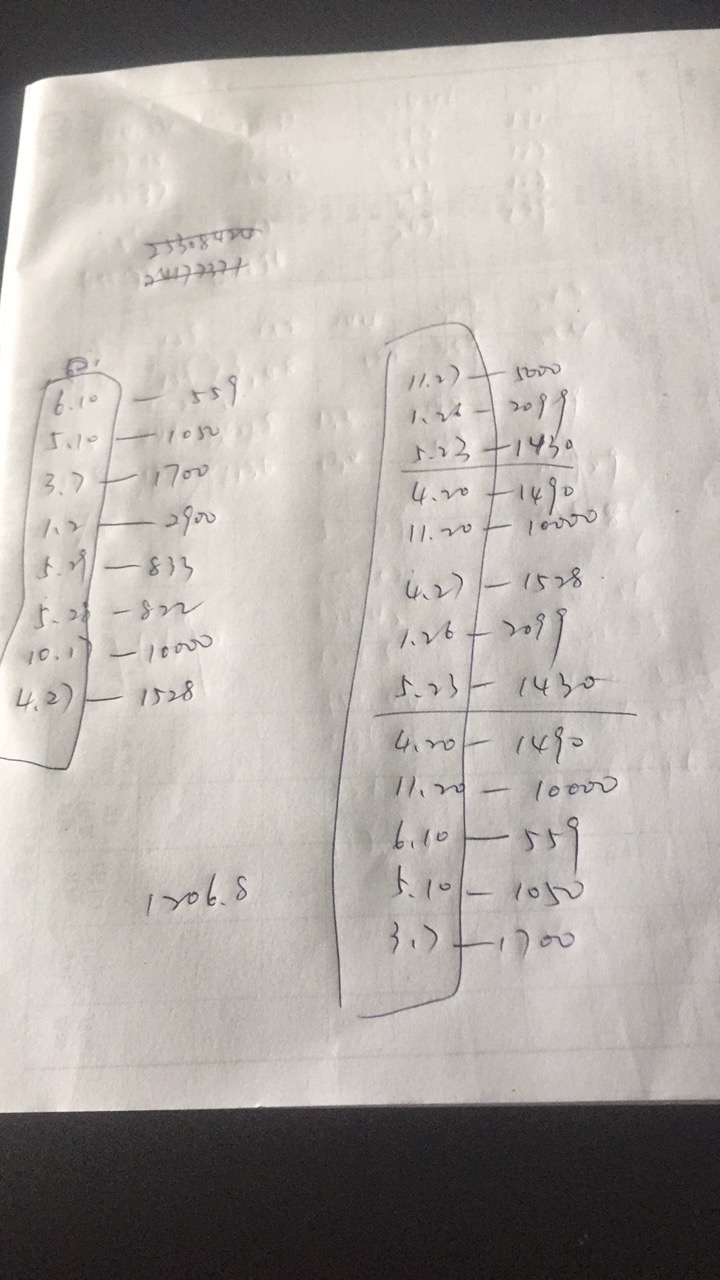 6.10 — 559
5.10 — 1050
3.7 — 1700
1.2 — 2900
5.29 — 833
5.28 — 822
10.17 — 10000
4.27 — 1528
1206.8
11.27 — 5000
1.26 — 2099
5.23 — 1430
4.20 — 1490
11.20 — 10000
4.27 — 1528
1.26 — 2099
5.23 — 1430
4.20 — 1490
11.20 — 10000
6.10 — 559
5.10 — 1050
3.7 — 1700